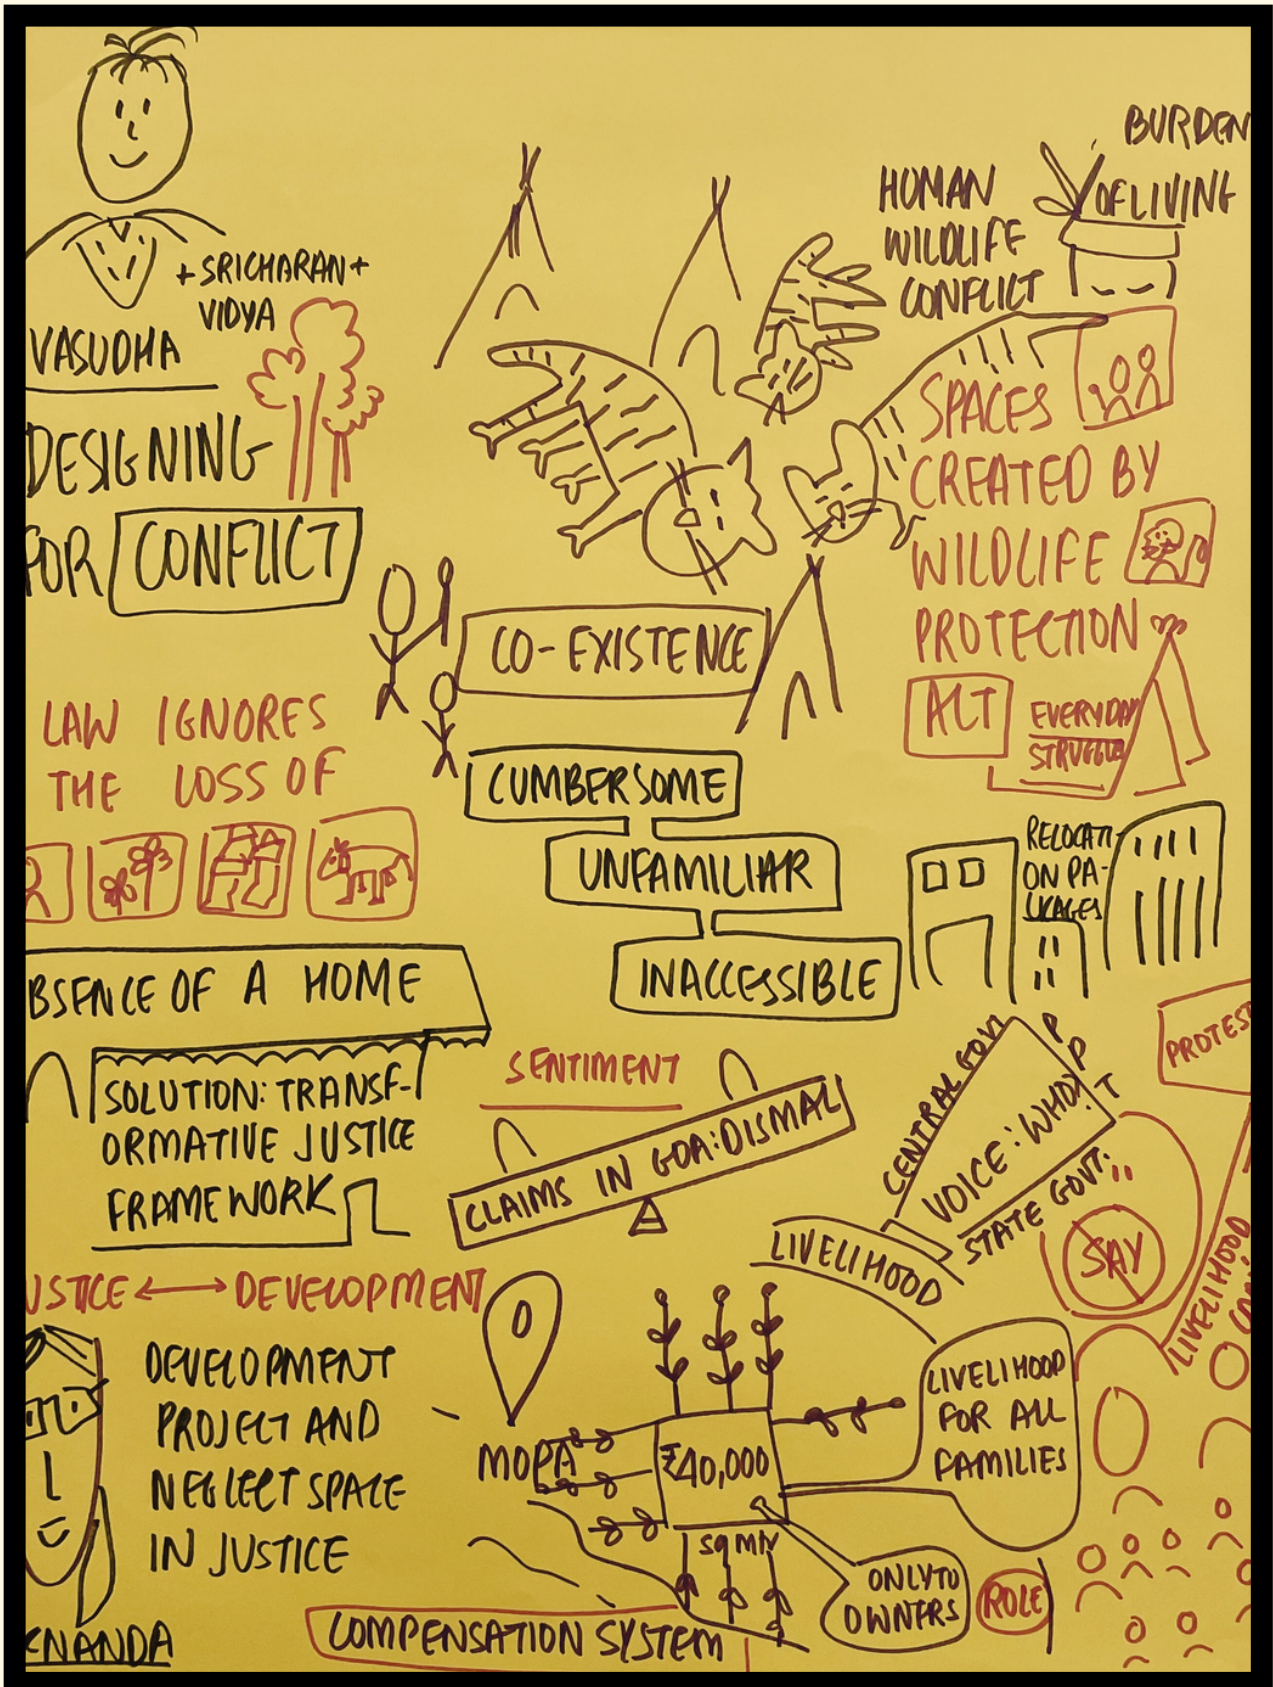 + SRICHARAN +
VIDYA
VASUDHA
DESIGNING
FOR CONFLICT
HUMAN
WILDLIFE
CONFLICT
BURDEN
OF LIVING
SPACES
CREATED BY
WILDLIFE
PROTECTION
ACT
EVERYDAY
STRUGGLE
CO-EXISTENCE
LAW IGNORES
THE LOSS OF
CUMBERSOME
UNFAMILIAR
INACCESSIBLE
RELOCATI-
ON PA-
CKAGES
BSENCE OF A HOME
SOLUTION: TRANSF-
ORMATIVE JUSTICE
FRAMEWORK
SENTIMENT
CLAIMS IN GOA: DISMAL
CENTRAL GOVT
VOICE: WHO?
STATE GOVT:
PPT
PROTEST
SAY
LIVELIHOOD
LIVELIHOOD
USTICE ↔ DEVELOPMENT
DEVELOPMENT
PROJECT AND
NEGLECT SPACE
IN JUSTICE
MOPA
₹40,000
SQ MTR
LIVELIHOOD
FOR ALL
FAMILIES
ONLY TO
OWNERS
ROLE
COMPENSATION SYSTEM
ENANDA